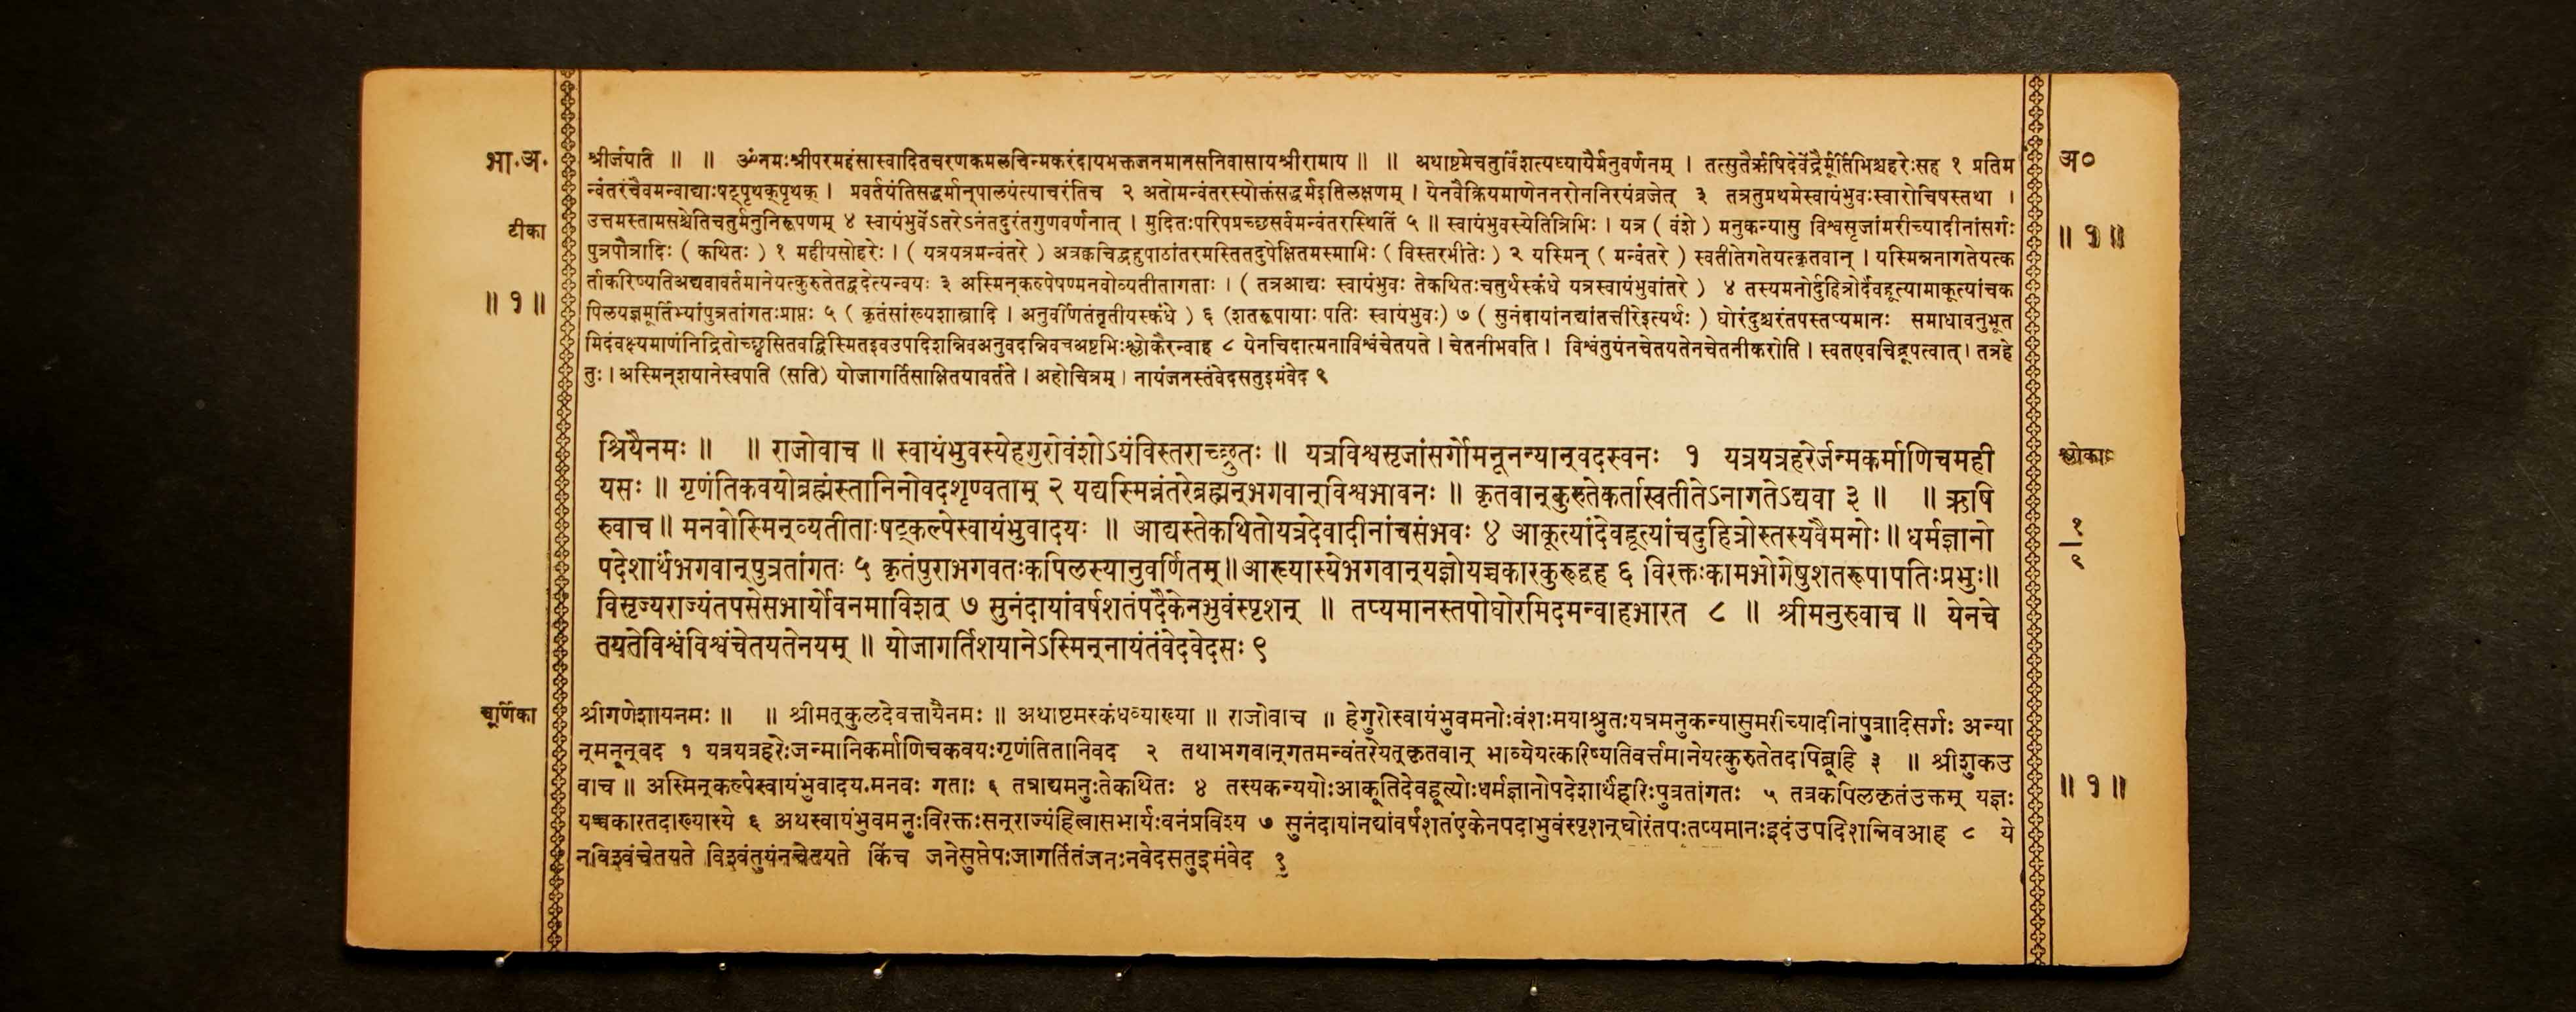 भा.अ.
श्रीर्जयति ॥ ॥ ॐनमःश्रीपरमहंसास्वादितचरणकमलचिन्मकरंदायभक्तजनमानसनिवासायश्रीरामाय ॥ ॥ अथाष्टमेचतुर्विंशत्यध्यायैर्मनुवर्णनम् । तत्सुतैर्ऋषिदेवेंद्रैर्मूर्तिभिश्चहरेःसह १ प्रतिम
अ०
न्वंतरंचैवमन्वाद्याःषट्पृथक्पृथक् । प्रवर्तयंतिसद्धर्मान्पालयंत्याचरंतिच २ अतोमन्वंतरस्योक्तंसद्धर्मइतिलक्षणम् । येनवैक्रियमाणेननरोननिरयंव्रजेत् ३ तत्रतुप्रथमेस्वायंभुवःस्वारोचिषस्तथा ।
टीका
उत्तमस्तामसश्चेतिचतुर्मनुनिरूपणम् ४ स्वायंभुवेंऽतरेऽनंतदुरंतगुणवर्णनात् । मुदितःपरिपप्रच्छसर्वमन्वंतरस्थितिं ५ ॥ स्वायंभुवस्येतित्रिभिः । यत्र ( वंशे ) मनुकन्यासु विश्वसृजांमरीच्यादीनांसर्गः
॥ १ ॥
पुत्रपौत्रादिः ( कथितः ) १ महीयसोहरेः । ( यत्रयत्रमन्वंतरे ) अत्रक्वचिद्बहुपाठांतरमस्तितदुपेक्षितमस्माभिः ( विस्तरभीतेः ) २ यस्मिन् ( मन्वंतरे ) स्वतीतेगतेयत्कृतवान् । यस्मिन्ननागतेयत्क
॥ १ ॥
र्ताकरिष्यतिअद्यवावर्तमानेयत्कुरुतेतद्वदेत्यन्वयः ३ अस्मिन्कल्पेषण्मनवोव्यतीतागताः । ( तत्रआद्यः स्वायंभुवः तेकथितःचतुर्थस्कंधे यत्रस्वायंभुवांतरे ) ४ तस्यमनोर्दुहित्रोर्देवहूत्यामाकूत्यांचक
पिलयज्ञमूर्तिभ्यांपुत्रतांगतःप्राप्तः ५ ( कृतंसांख्यशास्त्रादि । अनुवर्णितंतृतीयस्कंधे ) ६ (शतरूपायाः पतिः स्वायंभुवः) ७ ( सुनंदायांनद्यांतत्तीरेइत्यर्थः ) घोरंदुश्चरंतपस्तप्यमानः समाधावनुभूत
मिदंवक्ष्यमाणंनिद्रितोच्छ्वसितवद्विस्मितइवउपादिशन्निवअनुवदन्निवचअष्टभिःश्लोकैरन्वाह ८ येनचिदात्मनाविश्वंचेतयते । चेतनीभवति । विश्वंतुयंनचेतयतेनचेतनीकरोति । स्वतएवचिद्रूपत्वात् । तत्रहे
तुः । अस्मिन्शयानेस्वपति (सति) योजागर्तिसाक्षितयावर्तते । अहोचित्रम् । नायंजनस्तंवेदसतुइमंवेद ९
श्रियैनमः ॥ ॥ राजोवाच ॥ स्वायंभुवस्येहगुरोवंशोऽयंविस्तराच्छ्रुतः ॥ यत्रविश्वसृजांसर्गोमनूनन्यान्वदस्वनः १ यत्रयत्रहरेर्जन्मकर्माणिचमही
श्लोकाः
यसः ॥ गृणंतिकवयोब्रह्मंस्तानिनोवदशृण्वताम् २ यद्यस्मिन्नंतरेब्रह्मन्भगवान्विश्वभावनः ॥ कृतवान्कुरुतेकर्तास्वतीतेऽनागतेऽद्यवा ३ ॥ ॥ ऋषि
रुवाच ॥ मनवोस्मिन्व्यतीताःषट्कल्पेस्वायंभुवादयः ॥ आद्यस्तेकथितोयत्रदेवादीनांचसंभवः ४ आकूत्यांदेवहूत्यांचदुहित्रोस्तस्यवैमनोः॥ धर्मज्ञानो
१
९
पदेशार्थंभगवान्पुत्रतांगतः ५ कृतंपुराभगवतःकपिलस्यानुवर्णितम्॥आख्यास्येभगवान्यज्ञोयच्चकारकुरूद्वह ६ विरक्तःकामभोगेषुशतरूपापतिःप्रभुः॥
विसृज्यराज्यंतपसेसभार्योवनमाविशत् ७ सुनंदायांवर्षशतंपदैकेनभुवंस्पृशन् ॥ तप्यमानस्तपोघोरमिदमन्वाहभारत ८ ॥ श्रीमनुरुवाच ॥ येनचे
तयतेविश्वंविश्वंचेतयतेनयम् ॥ योजागर्तिशयानेऽस्मिन्नायंतंवेदवेदसः ९
चूर्णिका
श्रीगणेशायनमः ॥ ॥ श्रीमत्कुलदेवत्तायैनमः ॥ अथाष्टमस्कंधव्याख्या ॥ राजोवाच ॥ हेगुरोस्वायंभुवमनोःवंशःमयाश्रुतःयत्रमनुकन्यासुमरीच्यादीनांपुत्रादिसर्गः अन्या
न्मनून्वद १ यत्रयत्रहरेःजन्मानिकर्माणिचकवयःगृणंतितानिवद २ तथाभगवान्गतमन्वंतरेयत्कृतवान् भाव्येयत्करिष्यतिवर्त्तमानेयत्कुरुतेतदपिब्रूहि ३ ॥ श्रीशुकउ
वाच ॥ अस्मिन्कल्पेस्वायंभुवादय.मनवः गताः ६ तत्राद्यमनुःतेकथितः ४ तस्यकन्ययोःआकूतिदेवहूत्योःधर्मज्ञानोपदेशार्थंहरिःपुत्रतांगतः ५ तत्रकपिलकृतंउक्तम् यज्ञः
॥ १ ॥
यच्चकारतदाख्यास्ये ६ अथस्वायंभुवमनुःविरक्तःसन्राज्यंहित्वासभार्यःवनंप्रविश्य ७ सुनंदायांनद्यांवर्षशतंएकेनपदाभुवंस्पृशन्घोरंतपःतप्यमानःइदंउपदिशन्निवआह ८ ये
नविश्वंचेतयते विश्वंतुयंनचेतयते किंच जनेसुप्तेपःजागर्तितंजनःनवेदसतुइमंवेद ९